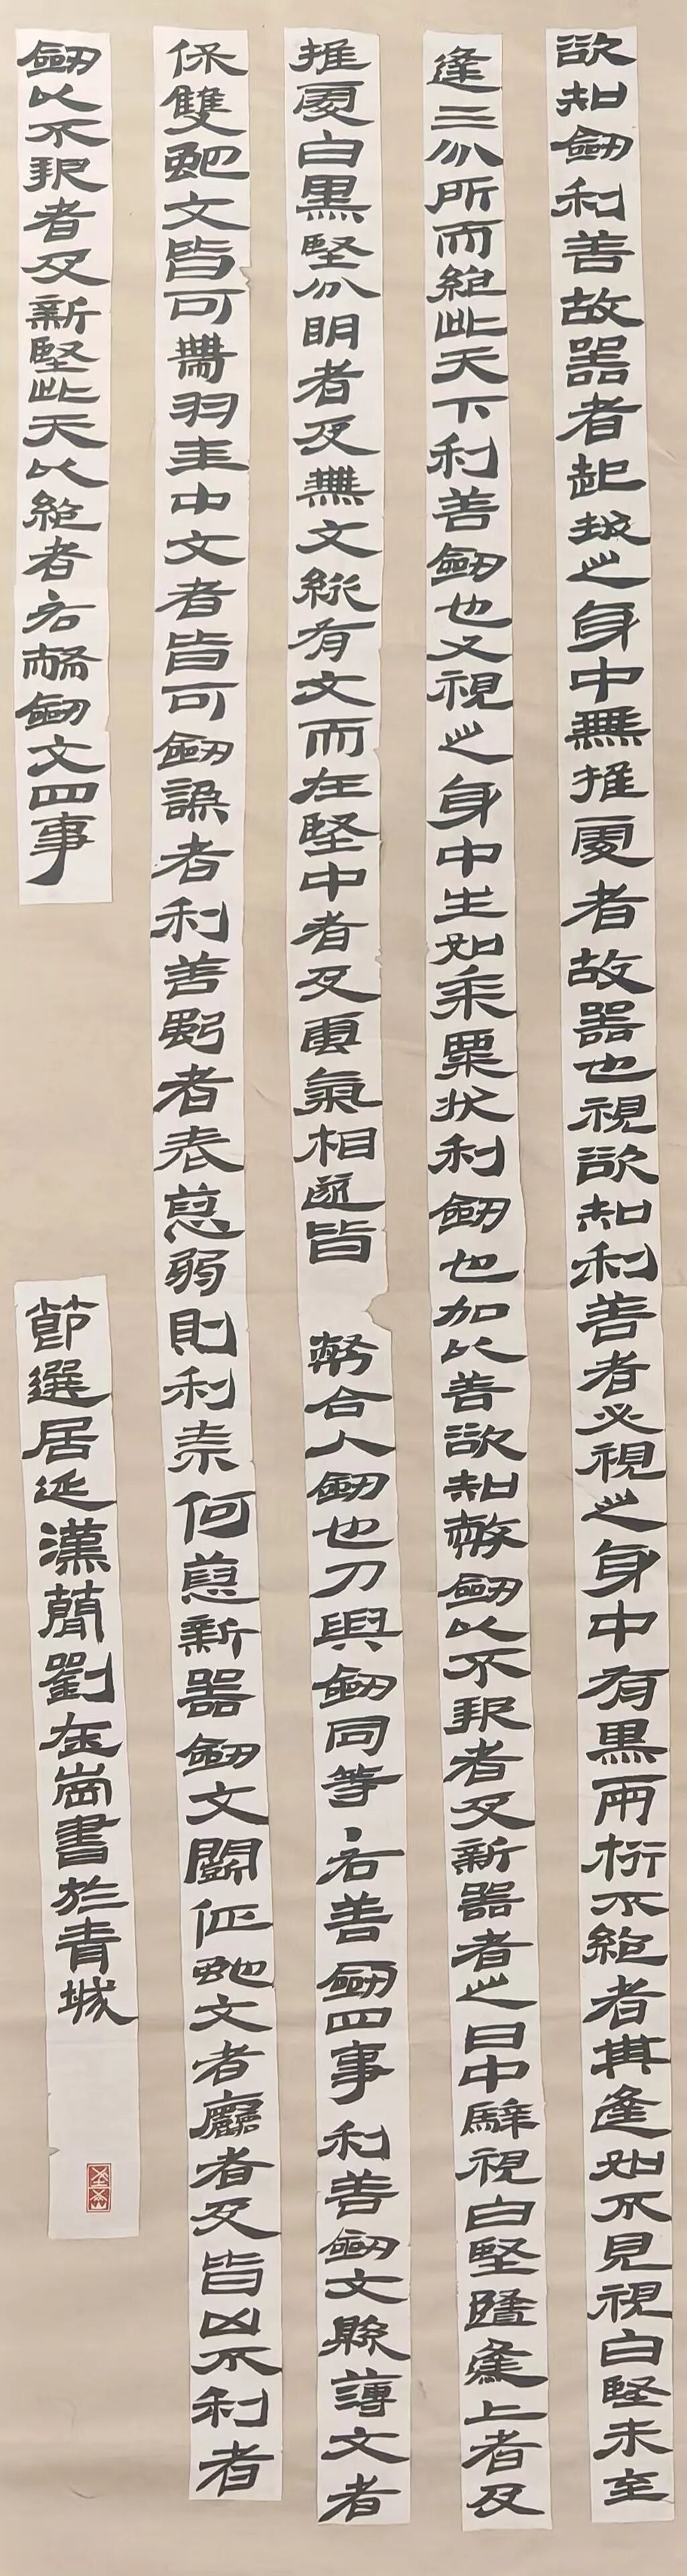 欲知劔利善故器者起拔之身中無推處者故器也視欲知利善者必視之身中有黑兩桁不絕者其逢如不見視白堅未至
逢三分所而絕此天下利善劔也又視之身中生如黍粟狀利劔也加以善欲知幣劔以不報者及新器者之日中騂視白堅隨逢上者及
推處白黑堅分明者及無文縱有文而在堅中者及雲氣相遂皆幣合人劔也刀與劔同等右善劔四事利善劔文縣薄文者
保雙蛇文皆可帶羽圭中文者皆可劔謶者利善強者表恿弱則利奈何恿新器劔文鬭佂蛇文者麤者及皆凶不利者
劔以不報者及新堅此天以絕者右幣劔文四事
節選居延漢簡劉金崗書於青城